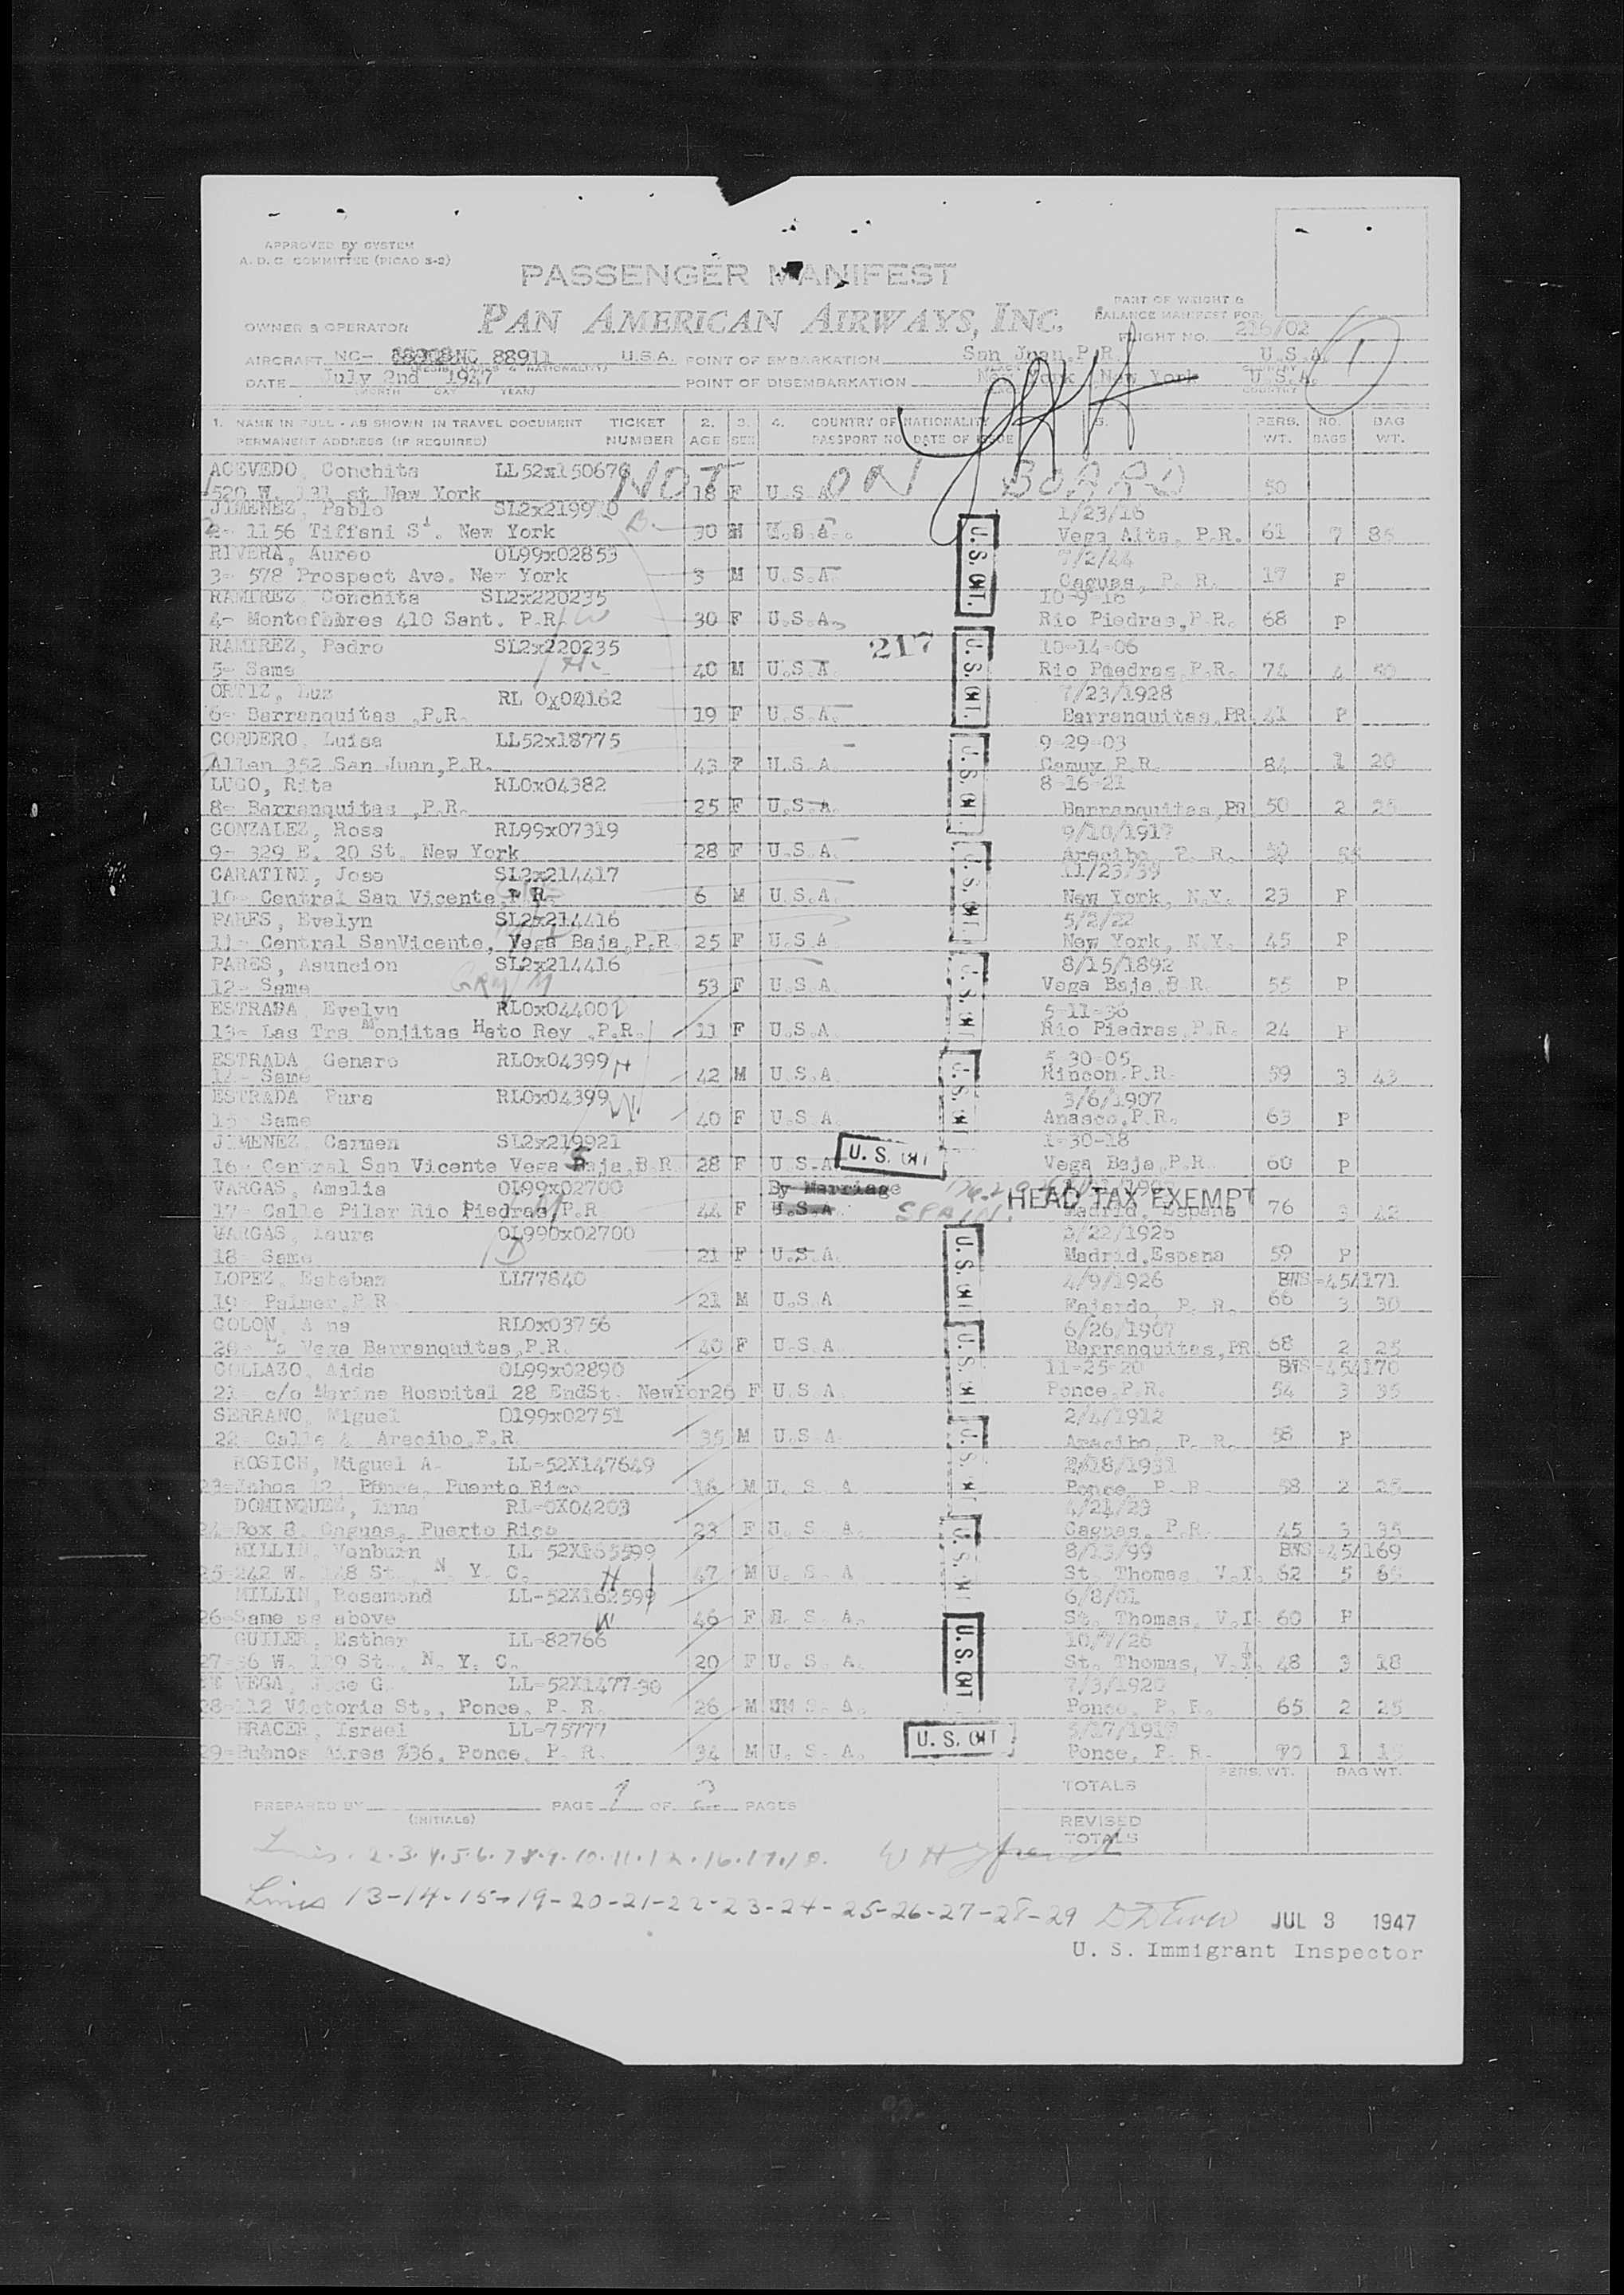 APPROVED BY SYSTEM
A. D. C. COMMITTEE (PICAO S-2)
PASSENGER MANIFEST
PAN AMERICAN AIRWAYS, INC.
PART OF WEIGHT &
BALANCE MANIFEST FOR:
OWNER & OPERATOR
FLIGHT NO. 216/02
AIRCRAFT NC- NC 88911 U.S.A. POINT OF EMBARKATION San Juan, P.R. U.S.A. 1
DATE July 2nd 1947 POINT OF DISEMBARKATION New York, New York U.S.A.
(MONTH DAY YEAR)
1. NAME IN FULL - AS SHOWN IN TRAVEL DOCUMENT TICKET 2. 3. 4. COUNTRY OF NATIONALITY 5. PERS. NO. BAG
PERMANENT ADDRESS (IF REQUIRED) NUMBER AGE SEX PASSPORT NO. DATE OF ISSUE WT. BAGS WT.
ACEVEDO, Conchita LL52x150676 NOT ON BOARD
520 W. 131 st New York 18 F U.S.A. 50
JIMENEZ, Pablo SL2x219920 1/23/16
2- 1156 Tiffani St. New York 30 M U.S.A. Vega Alta, P.R. 61 7 86
RIVERA, Aureo OL99x02853 7/2/44
3- 578 Prospect Ave. New York 3 M U.S.A. Caguas, P. R. 17 P
RAMIREZ, Conchita SL2x220235 10-9-16
4- Monteflores 410 Sant. P.R. W 30 F U.S.A. Rio Piedras, P.R. 68 P
RAMIREZ, Pedro SL2x220235 217 10-14-06
5- Same H 40 M U.S.A. Rio Piedras, P.R. 74 4 50
ORTIZ, Luz RL 0x04162 7/23/1928
6- Barranquitas, P.R. 19 F U.S.A. Barranquitas, PR 41 P
CORDERO, Luisa LL52x18775 9-29-03
Allen 352 San Juan, P.R. 43 F U.S.A. Camuy, P.R. 84 1 20
LUGO, Rita RL0x04382 8-16-21
8- Barranquitas, P.R. 25 F U.S.A. Barranquitas, PR 50 2 25
GONZALEZ, Rosa RL99x07319 9/10/1917
9- 329 E. 20 St. New York 28 F U.S.A. Arecibo, P. R.
CARATINI, Jose SL2x214417 11/23/39
10- Central San Vicente, P.R. 6 M U.S.A. New York, N.Y. 23 P
PARES, Evelyn SL2x214416 5/2/22
11- Central SanVicente, Vega Baja, P.R. 25 F U.S.A. New York, N.Y. 45 P
PARES, Asuncion SL2x214416 8/15/1892
12- Same GRM/M 53 F U.S.A. Vega Baja, P.R. 55 P
ESTRADA, Evelyn RL0x04400 D 5-11-36
13- Las Trs Monjitas Hato Rey, P.R. 11 F U.S.A. Rio Piedras, P.R. 24 P
ESTRADA Genaro RL0x04399 H 5-30-05
14- Same 42 M U.S.A. Rincon, P.R. 89 3 43
ESTRADA Pura RL0x04399 W 3/6/1907
15- Same 40 F U.S.A. Anasco, P.R. 63 P
JIMENEZ, Carmen SL2x219921 1-30-18
16- Central San Vicente Vega Baja, P.R. 28 F U.S.A. U.S. CIT. Vega Baja, P.R. 60 P
VARGAS, Amalia OL99x02700 By Marriage
17- Calle Pilar Rio Piedras, P.R. 44 F U.S.A. SPAIN. HEAD TAX EXEMPT Madrid, Espana 76 3 42
VARGAS, Laura OL990x02700 3/22/1926
18- Same D 21 F U.S.A. Madrid, Espana 59 P
LOPEZ, Esteban LL77840 4/9/1926 BWS-454171
19- Palmer, P.R. 21 M U.S.A. Fajardo, P. R. 66 3 30
COLON, Ana RL0x03756 6/26/1907
20- La Vega Barranquitas, P.R. 40 F U.S.A. Barranquitas, PR 68 2 25
COLLAZO, Aida OL99x02890 11-25-20 BWS-454170
21- c/o Marine Hospital 28 EndSt. NewYor26 F U.S.A. Ponce, P.R. 54 3 35
SERRANO, Miguel Ol99x02751 2/4/1912
22- Calle 4 Arecibo, P.R. 35 M U.S.A. Arecibo, P. R. 58 P
ROSICH, Miguel A. LL-52X147649 2/18/1931
Ponce, Puerto Rico 16 M U. S. A. Ponce, P. R. 58 2 25
DOMINQUEZ, Irma RL-0X04203 4/21/23
24-Box 8, Caguas, Puerto Rico 23 F U. S. A. Caguas, P.R. 45 3 35
MILLIN, Vonburn LL-52X165599 8/13/99 BWS-454169
25-242 W. 148 St., N. Y. C. H 47 M U. S. A. St. Thomas, V.I. 62 5 65
MILLIN, Rosamond LL-52X162599 6/8/01
26-Same as above W 46 F U. S. A. St. Thomas, V.I. 60 P
GUILER, Esther LL-82766 10/7/26
27- W. 129 St., N. Y. C. 20 F U. S. A. St. Thomas, V.I. 48 3 18
DE VEGA, Jose G. LL-52X1477-30 7/3/1920
28-112 Victoria St., Ponce, P. R. 26 M U. S. A. Ponce, P. R. 65 2 25
BRACER, Israel LL-75777
29-Buenos Aires 236, Ponce, P. R. 34 M U. S. A. U. S. CIT Ponce, P. R. 70 1
TOTALS PERS. WT. BAG WT.
PREPARED BY (INITIALS) PAGE 1 OF 3 PAGES
REVISED
TOTALS
Lines 2.3.4.5.6.7.8.9.10.11.12.16.17.18.
Lines 13-14-15-19-20-21-22-23-24-25-26-27-28-29 JUL 3 1947
U. S. Immigrant Inspector